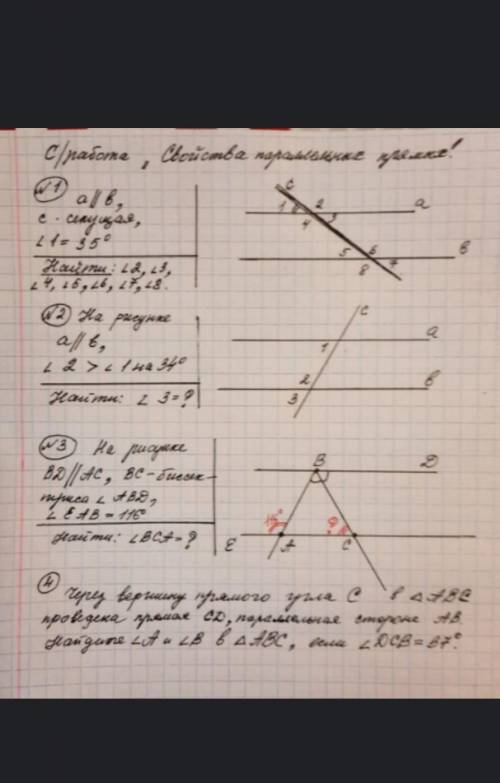 С/работа „Свойства параллельных прямых!
№1 a∥b,
c - секущая,
∠1 = 35°
Найти: ∠2, ∠3,
∠4, ∠5, ∠6, ∠7, ∠8.
c
1 2 a
4 3
5 6 7 b
8
№2 На рисунке
a∥b,
∠2 > ∠1 на 34°
Найти: ∠3 = ?
c
1 a
2 b
3
№3 На рисунке
BD∥AC, BC - биссек-
триса ∠ABD,
∠EAB = 116°
Найти: ∠BCA = ?
B D
?
E A C
4 Через вершину прямого угла C в △ABC
проведена прямая CD, параллельная стороне AB.
Найдите ∠A и ∠B в △ABC, если ∠DCB = 37°.